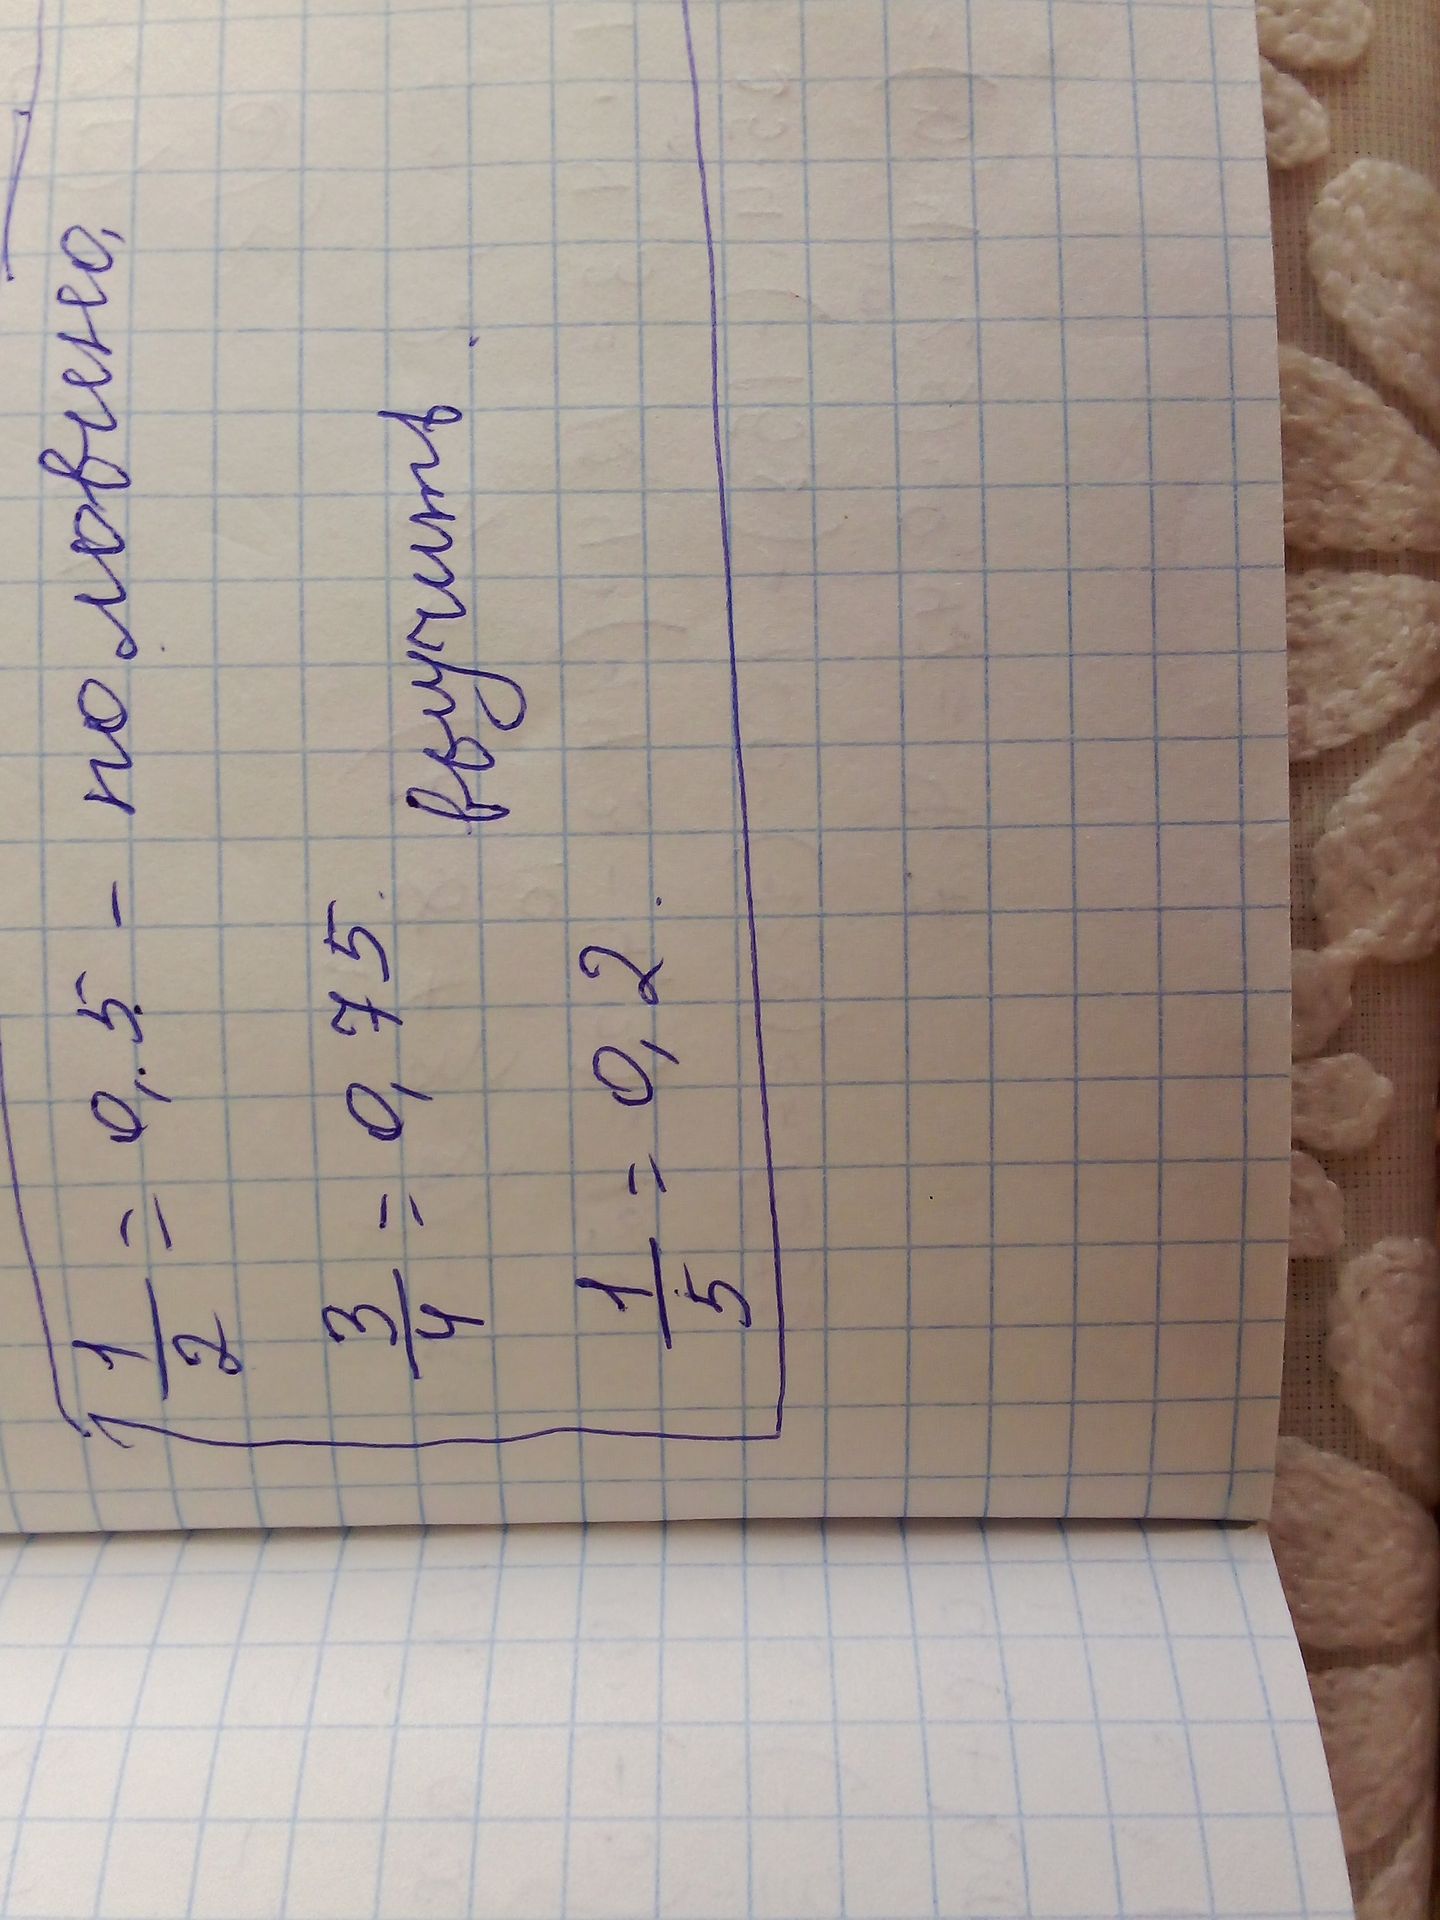 1/2 = 0,5 - половино,
3/4 = 0,75.
выучить.
1/5 = 0,2.